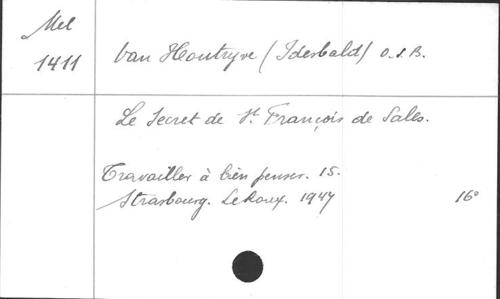 Mel
1411
Van Houtryve (Idesbald) O.S.B.
Le Secret de St. François de Sales.
Travailler à bien penser. 15.
Strasbourg. LeRoux. 1947
16°